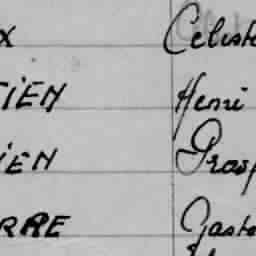 X Celest
TIEN Henri
IEN Prosp
RRE Gasto